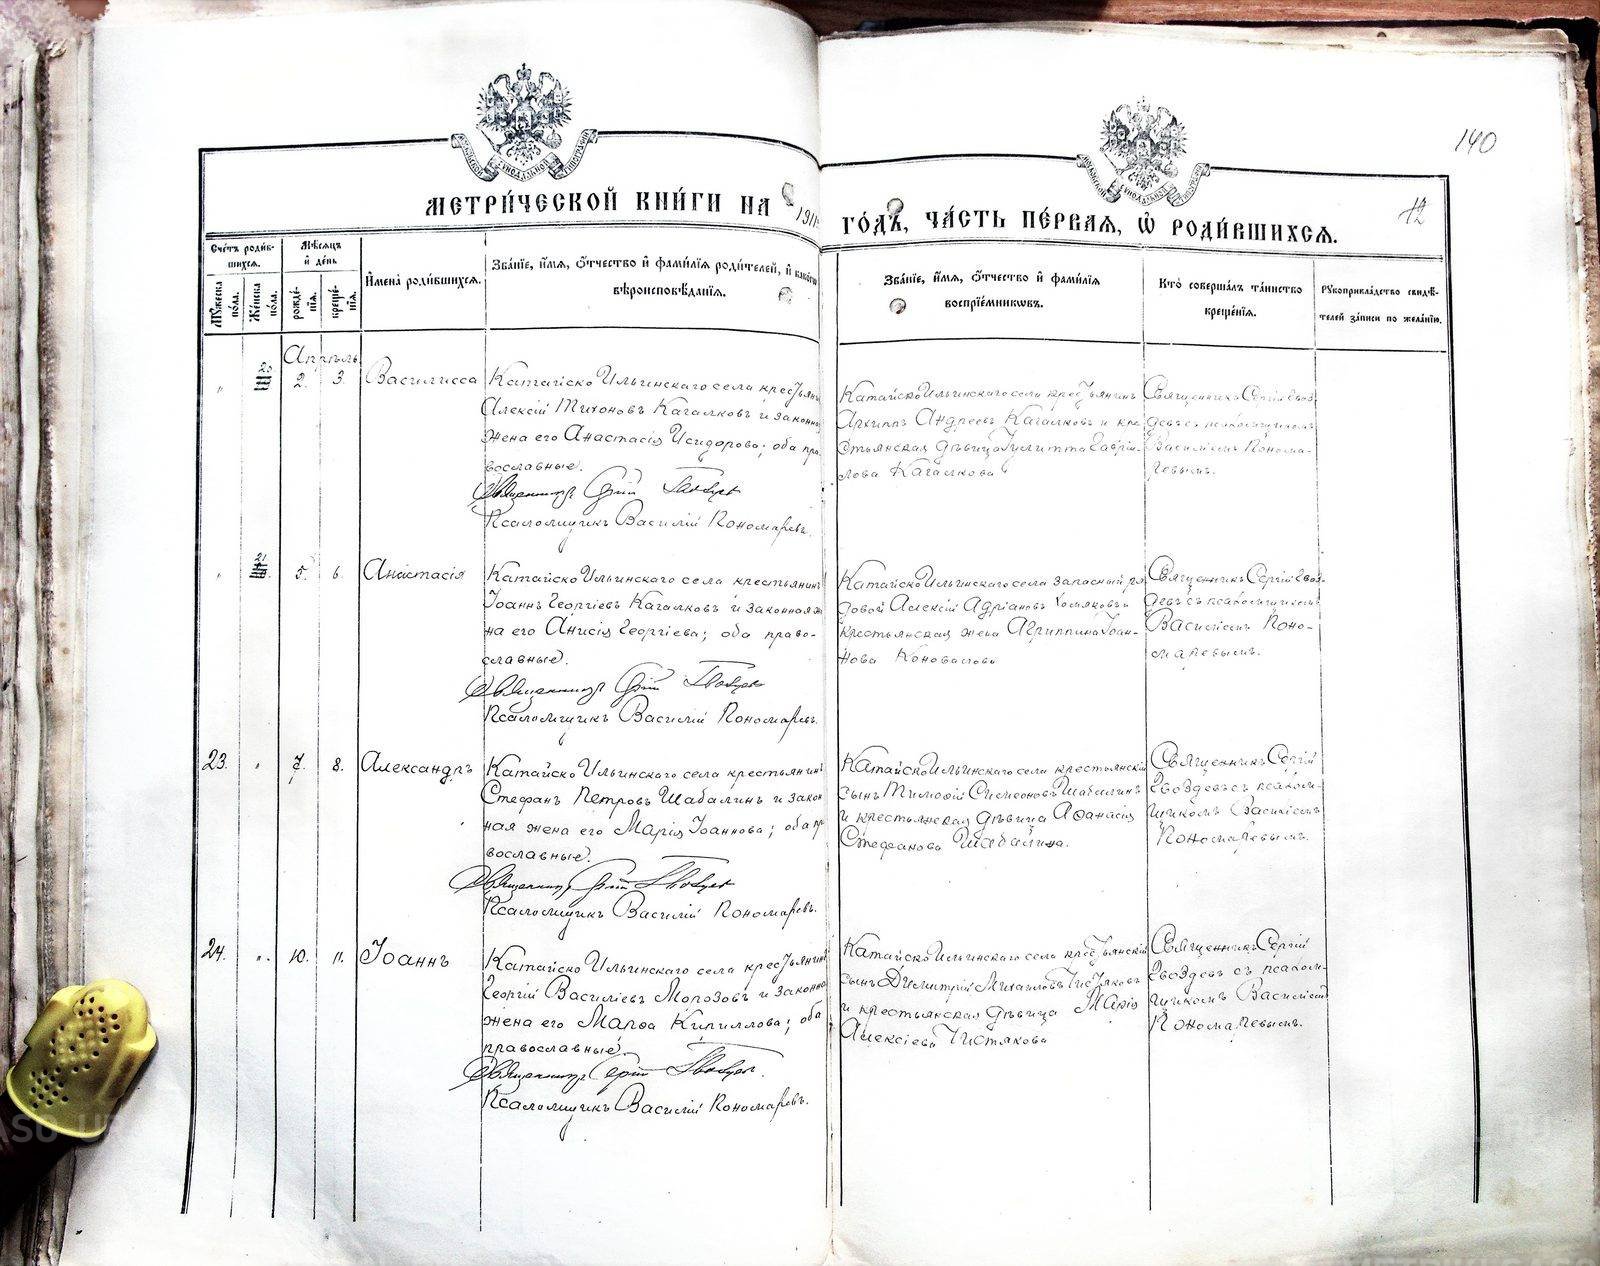 140
12
МЕТРИ́ЧЕСКОЙ КНИ́ГИ НА 1911 ГО́ДЪ, ЧА́СТЬ ПЕ́РВАЯ, Ѡ РОДИ́ВШИХСЯ.
Сче́тъ роди́в-
шихся.
Мѣ́сяцъ
и де́нь
Мужеска по́ла.
Же́нска по́ла.
рожде́-
нія.
креще́-
нія.
И́мена̀ роди́вшихся.
Зва́ніе, и́мя, ѻ́тчество и фами́лія роди́телей, и како́го
вѣроисповѣ́данія.
Зва́ніе, и́мя, ѻ́тчество и фами́лія
воспріе́мниковъ.
Кто̀ соверша́лъ та́инство
креще́нія.
Рукоприкла́дство свидѣ́-
телей за́писи по жела́нію.
Апрѣль
"
20
2.
3.
Василисса
Катайско Ильинскаго села крестьянинъ
Алексій Тихоновъ Кагалковъ и законная
жена его Анастасія Исидорова; оба пра-
вославные.
Священникъ Сергій Гвоздевъ
Псаломщикъ Василій Пономаревъ.
Катайско Ильинскаго села крестьянинъ
Архиппъ Андреевъ Кагалковъ и кре-
стьянская дѣвица Іулитта Гаврі-
лова Кагалкова
Священникъ Сергій Гвоз-
девъ съ псаломщикомъ
Василіемъ Понома-
ревымъ.
"
21
5.
6.
Анастасія
Катайско Ильинскаго села крестьянинъ
Іоаннъ Георгіевъ Кагалковъ и законная же-
на его Анисія Георгіева; оба право-
славные.
Священникъ Сергій Гвоздевъ
Псаломщикъ Василій Пономаревъ.
Катайско Ильинскаго села запасный ря-
довой Алексій Адріановъ Хомяковъ и
крестьянская жена Агриппина Іоан-
нова Коновалова
Священникъ Сергій Гвоз-
девъ съ псаломщикомъ
Василіемъ Поно-
маревымъ.
23.
"
7.
8.
Александръ
Катайско Ильинскаго села крестьянинъ
Стефанъ Петровъ Шабалинъ и закон-
ная жена его Марія Іоаннова; оба пра-
вославные.
Священникъ Сергій Гвоздевъ
Псаломщикъ Василій Пономаревъ.
Катайско Ильинскаго села крестьянскій
сынъ Тимофій Симеоновъ Шабалинъ
и крестьянская дѣвица Афанасія
Стефанова Шабалина.
Священникъ Сергій
Гвоздевъ съ псалом-
щикомъ Василіемъ
Пономаревымъ.
24.
"
10.
11.
Іоаннъ
Катайско Ильинскаго села крестьянинъ
Георгій Василіевъ Морозовъ и законная
жена его Марѳа Кириллова; оба
православные.
Священникъ Сергій Гвоздевъ.
Псаломщикъ Василій Пономаревъ.
Катайско Ильинскаго села крестьянскій
сынъ Димитрій Михаиловъ Чистяковъ
и крестьянская дѣвица Марія
Алексіева Чистякова
Священникъ Сергій
Гвоздевъ съ псалом-
щикомъ Василіемъ
Пономаревымъ.